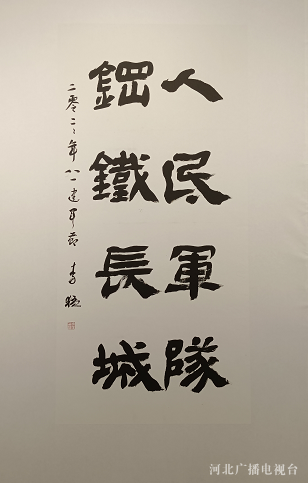 人民軍隊
鋼鐵長城
二零二二年八一建军节 李
河北广播电视台